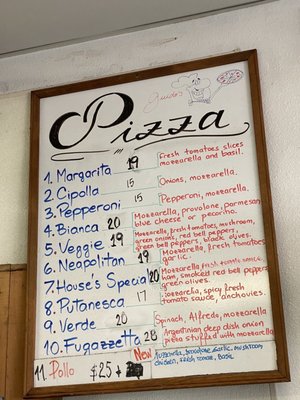 Guido's
Pizza
1. Margarita 19 Fresh tomatoes slices
mozzarella and basil.
2. Cipolla 15 Onions, mozzarella.
3. Pepperoni 15 Pepperoni, mozzarella.
4. Bianca 20 Mozzarella, provolone, parmesan,
blue cheese or pecorino.
5. Veggie 19 Mozzarella, fresh tomatoes, mushroom,
green onions, red bell peppers,
green bell peppers, black olives.
6. Neapolitan 19 Mozzarella, fresh tomatoes,
garlic.
7. House's Special 20 Mozzarella fresh tomato sauce,
ham, smoked red bell peppers
green olives.
8. Putanesca 17 Mozzarella, spicy fresh
tomato sauce, anchovies.
9. Verde 20 Spinach, Alfredo, mozzarella
10. Fugazzetta 28 Argentinian deep dish onion
pizza stuffed with mozzarella
11. Pollo $25 New Mozzarella, provolone, garlic, mushroom,
chicken, fresh tomato, Basil